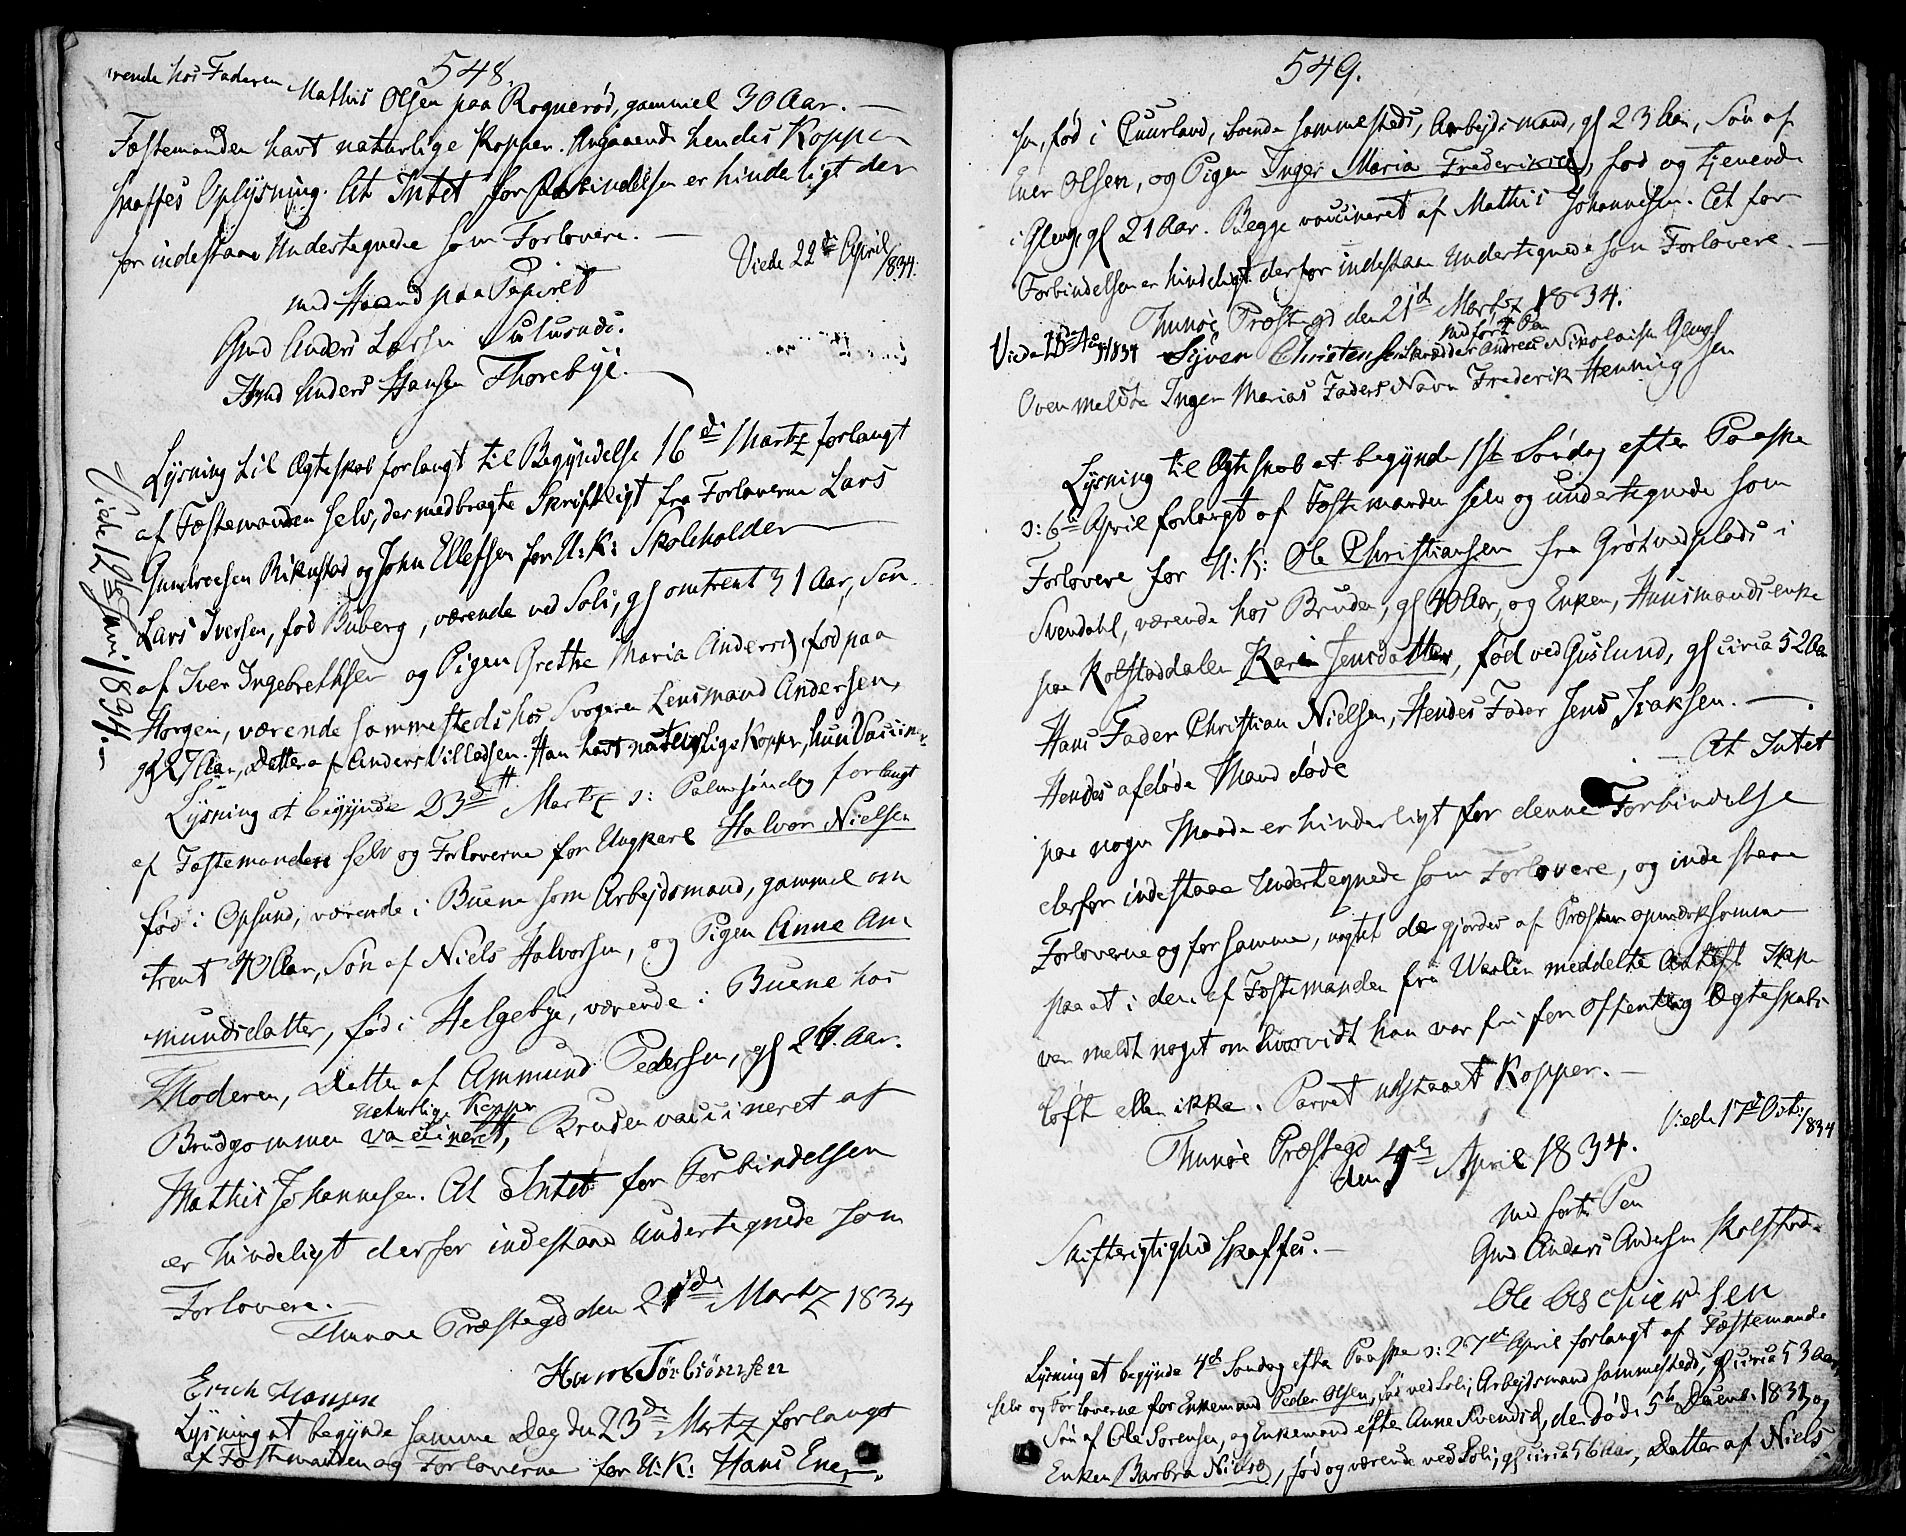 548.
værende hos Faderen Mathis Olsen paa Rognerød, gammel 30 Aar. —
Fæstemanden havt naturlige Kopper. Angaaende hendes Kopper
skaffes Oplysning. At Intet for Forbindelsen er hinderligt der
for indestaae Undertegnede som Forlovere. —
Viede 22de April 1834.
med Haand paa Papiret
Gmd Anders Larsen
Hmd Anders Hansen Thorebye.
Lysning til Ægteskab forlangt til Begyndelse 16de Martz forlangt
af Fæstemanden selv, der medbragte Skriftligt fra Forloverne Lars
Gundersen Rikustad og John Ellefsen for U: K: Skoleholder
Lars Iversen, fød Buberg, værende ved Soli, gl omtrent 31 Aar, Søn
af Iver Ingebrethsen og Pigen Grethe Maria Andersd, fød paa
Horgen, værende sammesteds hos Svogeren Lensmand Andersen,
gl 27 Aar, Datter af Anders Villadsen. Han havt naturlige Kopper, hun Vaccineret
Viede 12te Juni 1834. —
Lysning at begynde 23de Martz ɔ: Palmesøndag forlangt
af Fæstemanden selv og Forloverne for Ungkarl Halvor Nielsen
fød i Opsund, værende i Buene som Arbejdsmand, gammel om
trent 40 Aar, Søn af Niels Halvorsen, og Pigen Anne Am
mundsdatter, fød i Helgebye, værende i Buene hos
Moderen, Datter af Ammund Pedersen, gl 26. Aar.
naturlige Kopper
Brudgommen vaccineret, Bruden vaccineret af
Mathis Johannesen. At Intet for Forbindelsen
er hindeligt derfor indestaae Undertegnede som
Forlovere. —
Thunøe Præstegd den 21de Martz 1834
Hans Torbiørnsen
Erich Hansen
Lysning at begynde samme Dag den 23de Martz forlangt
af Fæstemanden og Forloverne for U: K: Hans Ener
549.
sen, fød i Buurland, boende sammesteds, Arbejdsmand, gl 23 Aar, Søn af
Ener Olsen, og Pigen Inger Maria Frederiksd, fød og tjenende
i Gleng, gl 21 Aar. Begge vaccineret af Mathis Johannesen. At for
Forbindelsen er hindeligt derfor indestaae Undertegnede som Forlovere. —
Thunøe Præstegd den 21de Martz 1834.
med ført Pen
Siver Christensen Skrædder Andreas Nicolaisen Gleng
Ovenmeldte Inger Marias Faders Navn Frederik Henningsen
Lysning til Ægteskab at begynde 1ste Søndag efter Paaske
ɔ: 6te April forlangt af Fæstemanden selv og undertegnede som
Forlovere for U: K: Ole Christiansen fra Grøtvedplads i
Svendahl, værende hos Bruden, gl 40 Aar, og Enken, Huusmandsenke
paa Kolstaddalen Kari Jensdatter, fød ved Guslund, gl circa 52 Aar
Hans Fader Christian Nielsen, Hendes Fader Jens Isaksen. —
Hendes afdøde Mand døde
— At Intet
paa nogen Maade er hinderligt for denne Forbindelse
derfor indestaae Undertegnede som Forlovere, og indestaae
Forloverne og for samme, uagtet de gjordes af Præsten opmærksomme
paa at i den af Fæstemanden fra meddelte Attest Ikke
var meldt noget om hvorvidt han var fri for Offentlig Ægteskabs
løfte eller ikke. Parret udstaaet Kopper. —
Thunøe Præstegd
den 4de April 1834.
Viede 17de Octbr 1834
Skifterigtighed skaffes. —
med ført Pen
Gmd Anders Andersen Kolstad
Ole
Lysning at begynde 4de Søndag efter Paaske ɔ: 27de April forlangt af Fæstemanden
selv og Forloverne for Enkemand Peder Olsen, fød ved Soli, Arbejdsmand sammesteds, gl circa 53 Aar,
Søn af Ole Sørensen, og Enkemand efter Anne Svendsd, der døde 5te Decembr 1831 og
Enken Barbra Nielsd, fød og værende ved Soli, gl circa 56 Aar, Datter af Niels